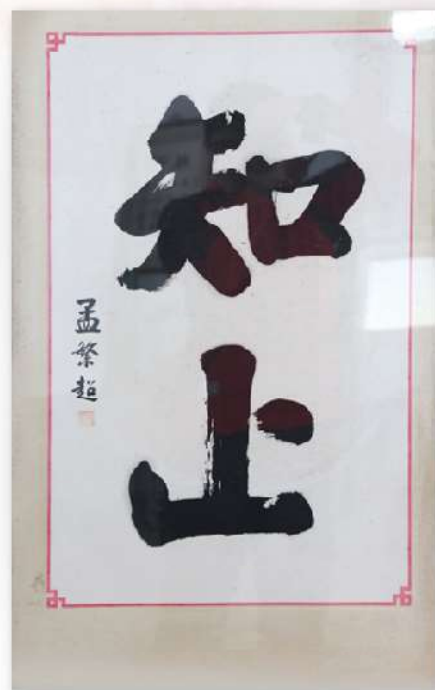 知止
孟繁超